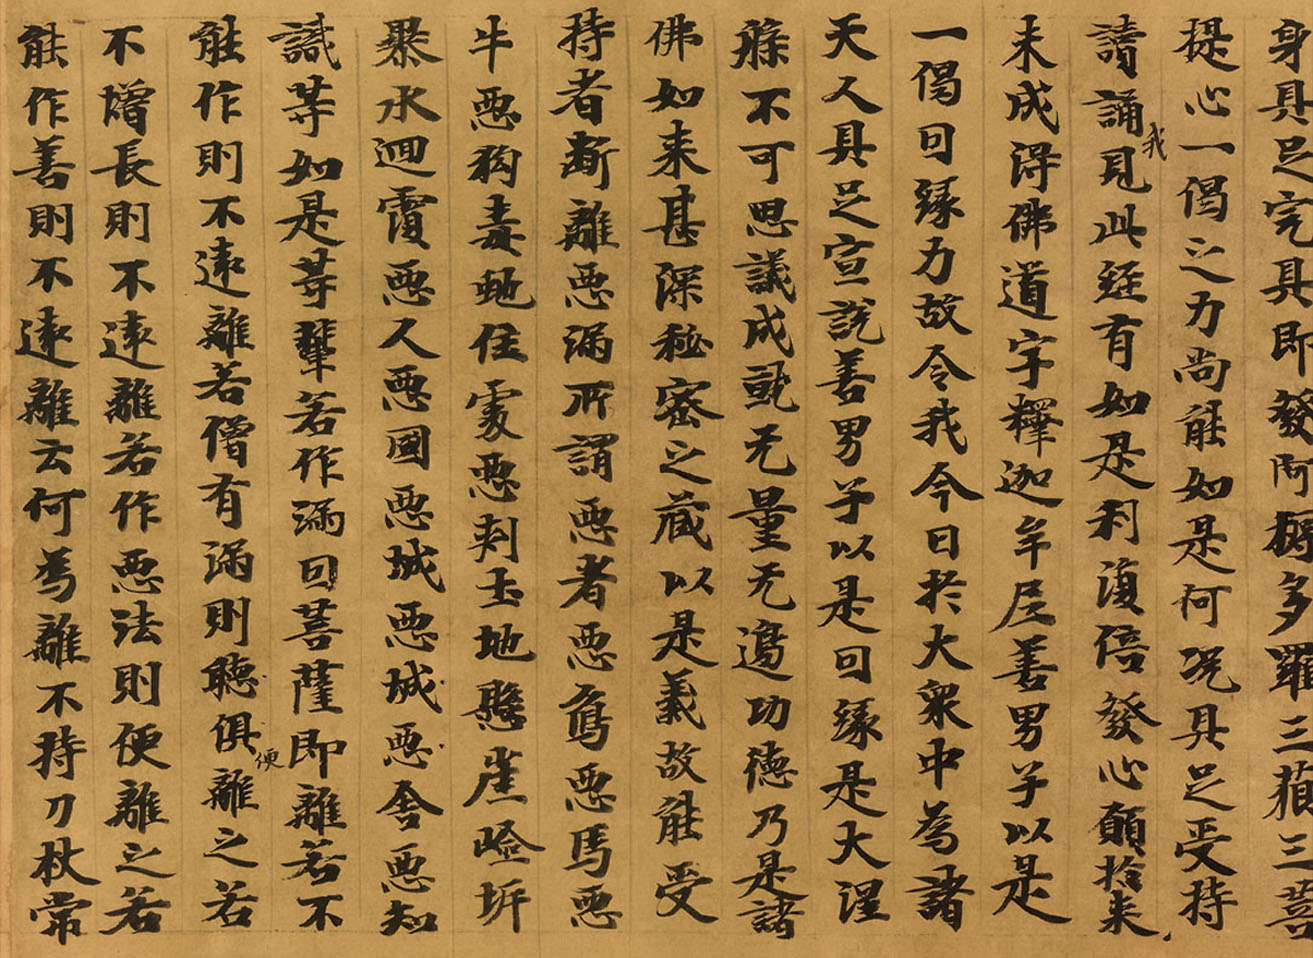 身具足完具即發阿耨多羅三藐三菩
提心一偈之力尚能如是何況具足受持
請誦我見此經有如是利復倍發心願於未
来成得佛道字釋迦牟尼善男子以是
一偈因緣力故令我今日於大衆中為諸
天人具足宣說善男子以是因緣是大涅
槃不可思議成就无量无邊功德乃是諸
佛如来甚深秘密之藏以是義故能受
持者断離惡漏所謂惡者惡象惡馬惡
牛惡狗毒虵住處惡刺土地懸崖嶮岸
暴水洄澓惡人惡國惡城惡城惡舍惡知
識等如是等輩若作漏因菩薩即離若不
能作則不遠離若僧有漏則聽俱便離之若
不增長則不遠離若作惡法則便離之若
能作善則不遠離云何為離不持刀杖常